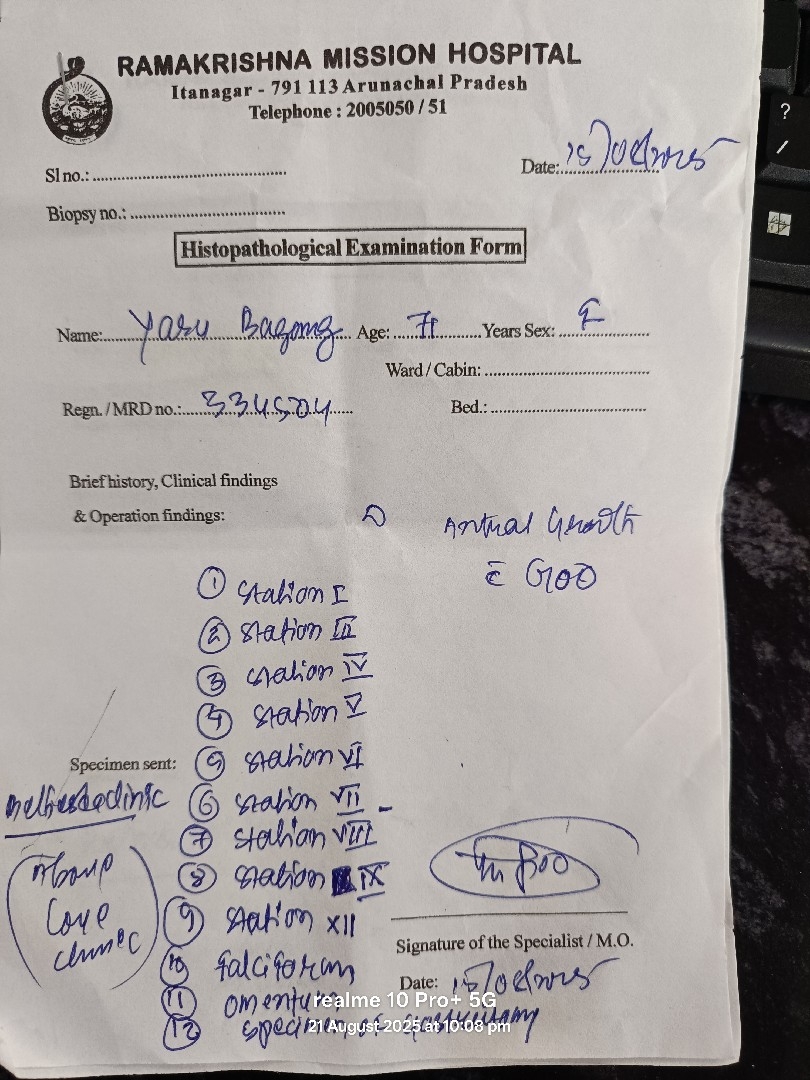 RAMAKRISHNA MISSION HOSPITAL
Itanagar - 791 113 Arunachal Pradesh
Telephone : 2005050 / 51
Sl no.:
Date: 15/08/2025
Biopsy no.:
Histopathological Examination Form
Name: Yaru Bagang Age: 71 Years Sex: F
Ward / Cabin:
Regn. / MRD no.: 334504 Bed.:
Brief history, Clinical findings
& Operation findings: Antral Growth
c̄ GOO
① Station I
② Station III
③ Station IV
④ Station V
Specimen sent: ⑤ Station VI
⑥ Station VII -
⑦ Station VIII
⑧ Station IX
Above
Love
clinic
⑨ Station XII
⑩ falciform
⑪ omentum
⑫ specimen of gastrectomy
Signature of the Specialist / M.O.
Date: 15/08/2025
realme 10 Pro+ 5G
21 August 2025 at 10:08 pm
?
/